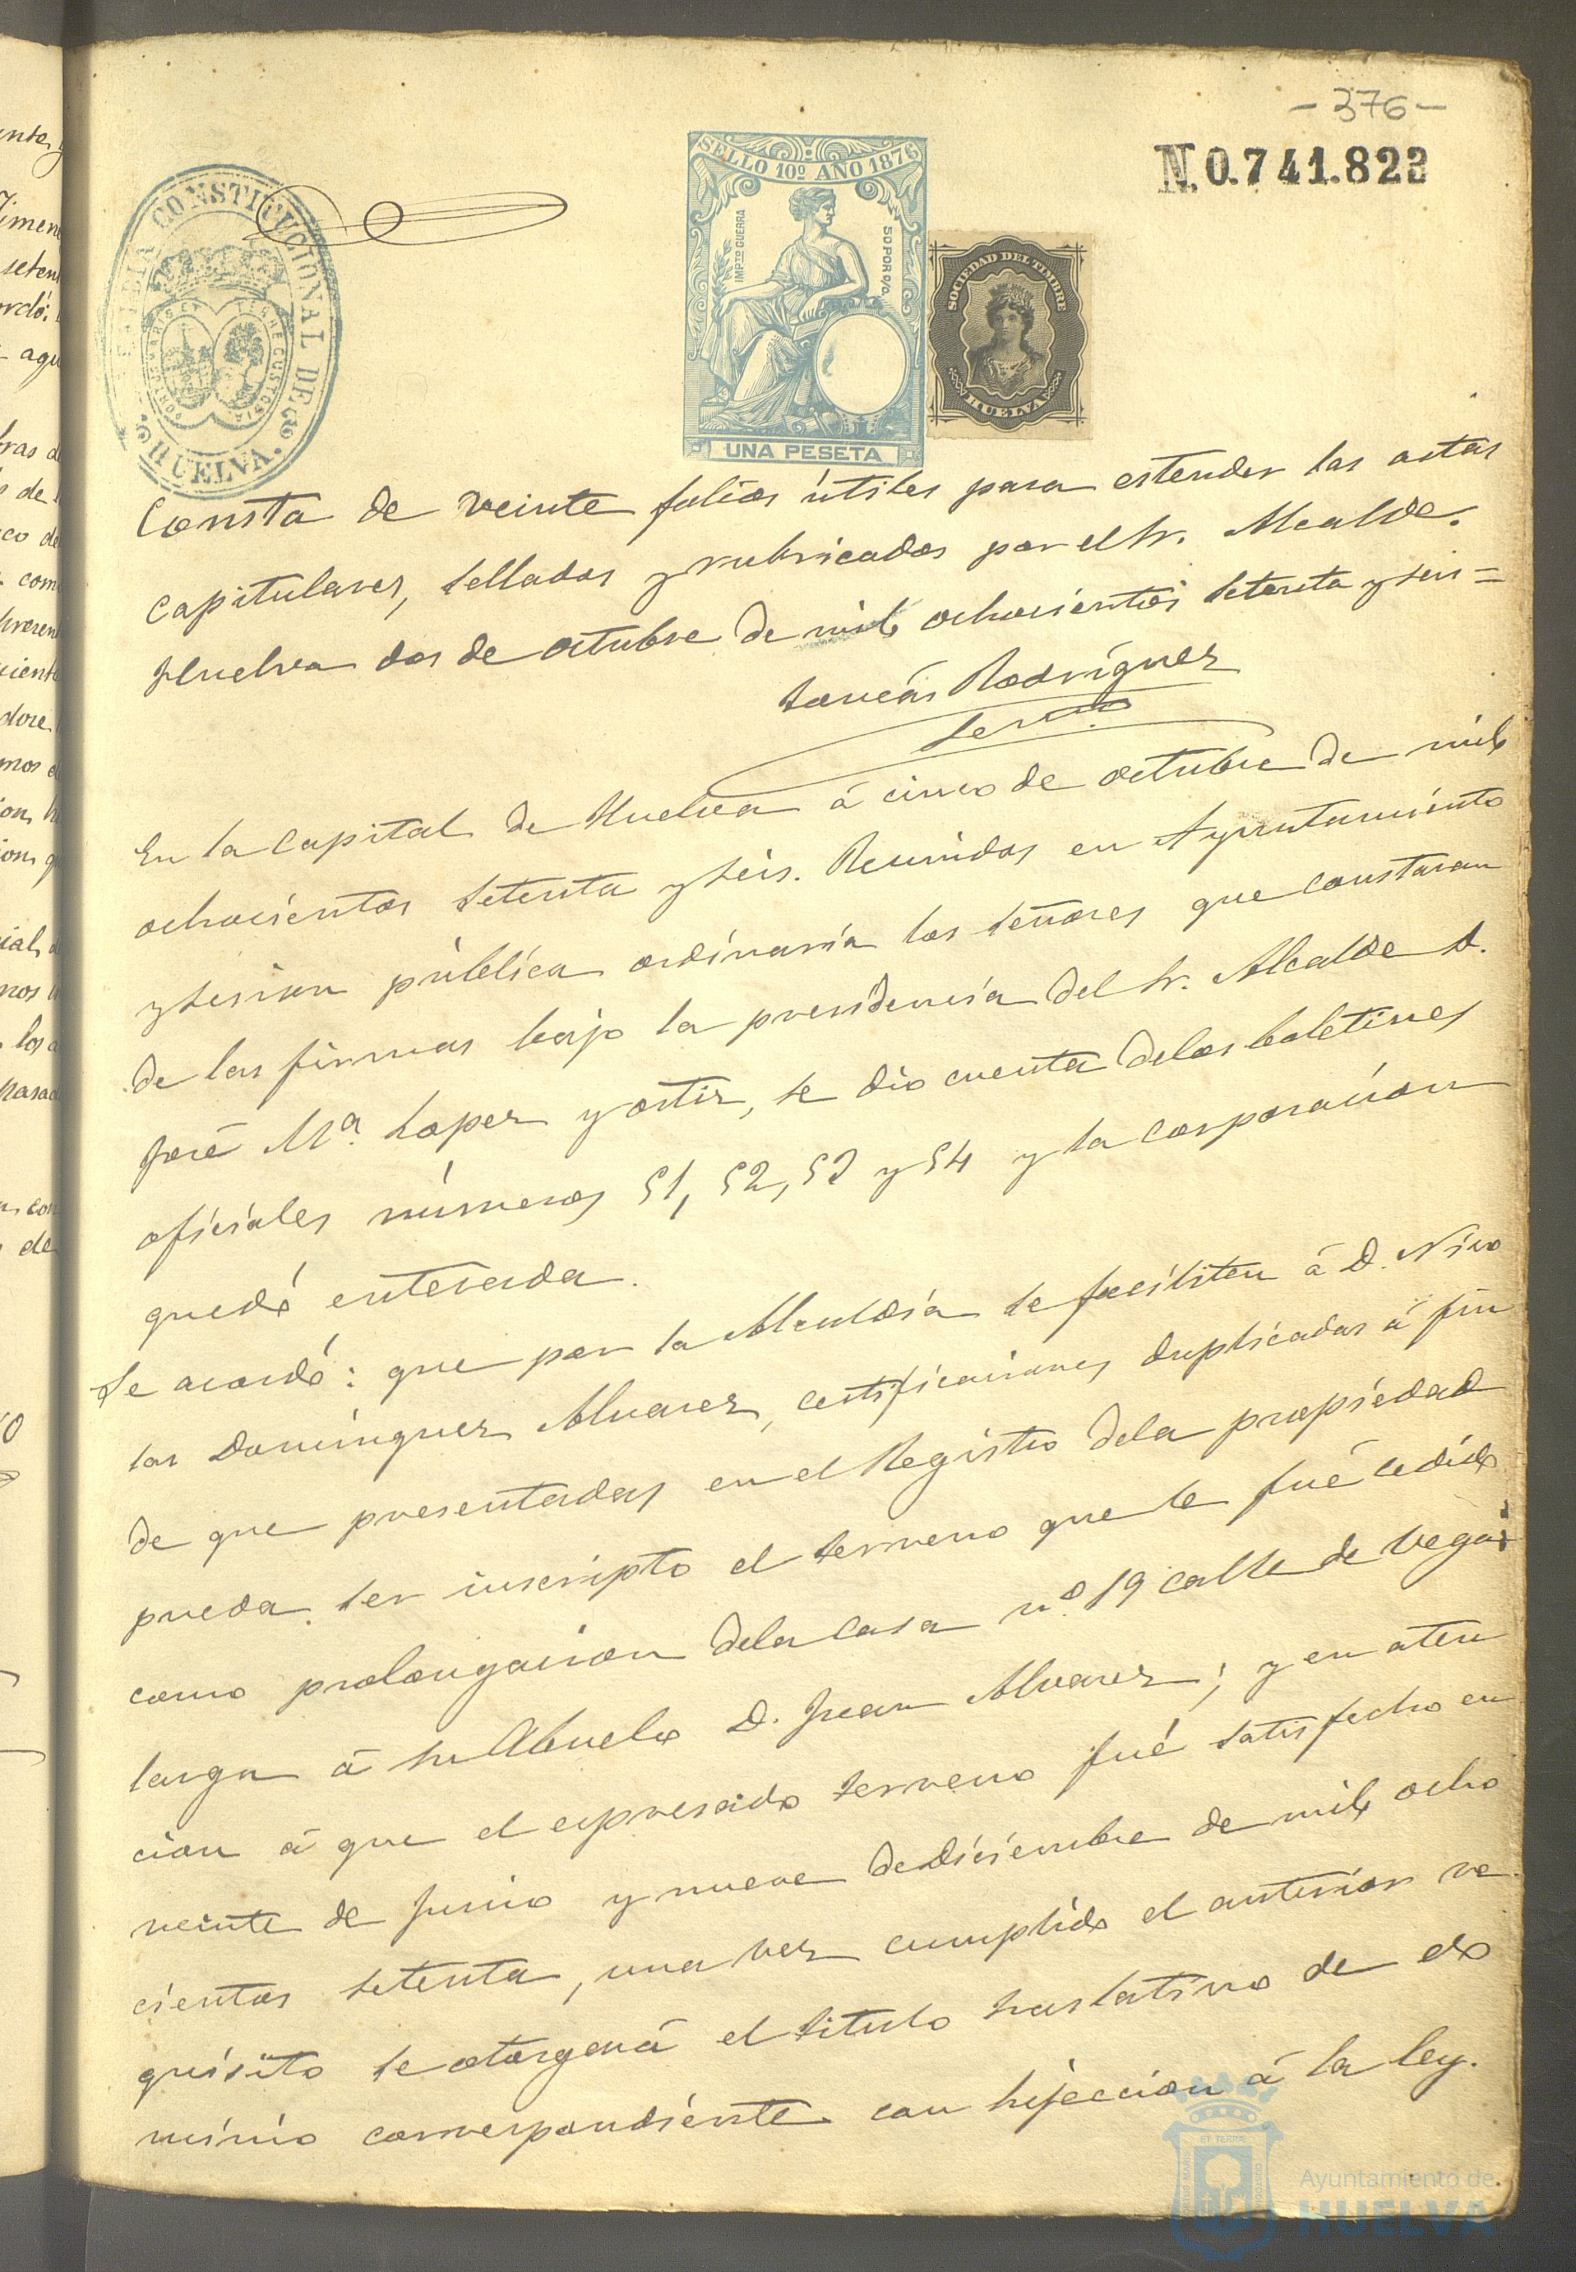 - 376 -
N. 0.741.823
SELLO 10º AÑO 1876
IMPTO GUERRA
50 POR 0/0
UNA PESETA
SOCIEDAD DEL TIMBRE
HUELVA
CONSTITUCIONAL DE
HUELVA
Consta de veinte folios útiles para estender las actas
capitulares, sellados y rubricados por el Sr. Alcalde.
Huelva dos de octubre de mil ochocientos setenta y seis=
Rodríguez
Srio
En la Capital de Huelva á cinco de octubre de mil
ochocientos setenta y seis. Reunidos en Ayuntamiento
y sesion pública ordinaria los señores que constaran
de las firmas bajo la presidencia del Sr. Alcalde D.
José Mª Lopez y ortiz, se dio cuenta delos boletines
oficiales números 51, 52, 53 y 54 y la corporacion
quedó enterada.
Se acordó: que por la Alcaldía se faciliten á D. Nico
las Dominguez Alvarez, certificaciones duplicadas á fin
de que presentadas en el Registro dela propiedad
pueda ser inscripto el terreno que le fué cedido
como prolongacion dela casa nº 19 calle de Vega
larga á su Abuelo D. Juan Alvarez; y en aten
cion á que el espresado terreno fué satisfecho en
veinte de Junio y nueve de Diciembre de mil ocho
cientos setenta, una vez cumplido el anterior re
quisito se otorgará el titulo traslativo de do
minio correspondiente con sujeccion á la ley.
Ayuntamiento de
HUELVA